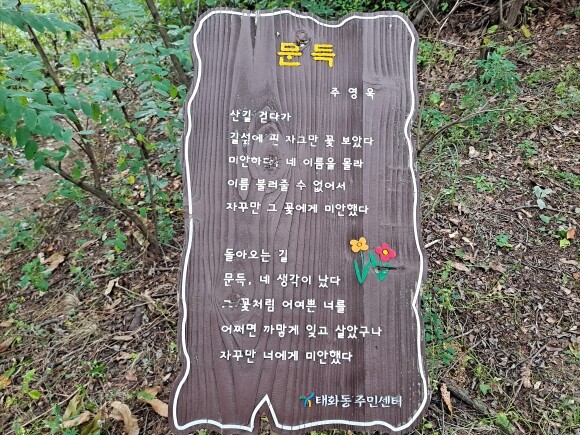 문득
주영욱
산길 걷다가
길섶에 핀 자그만 꽃 보았다
미안하다, 네 이름을 몰라
이름 불러줄 수 없어서
자꾸만 그 꽃에게 미안했다
돌아오는 길
문득, 네 생각이 났다
그 꽃처럼 어여쁜 너를
어쩌면 까맣게 잊고 살았구나
자꾸만 너에게 미안했다
태화동 주민센터